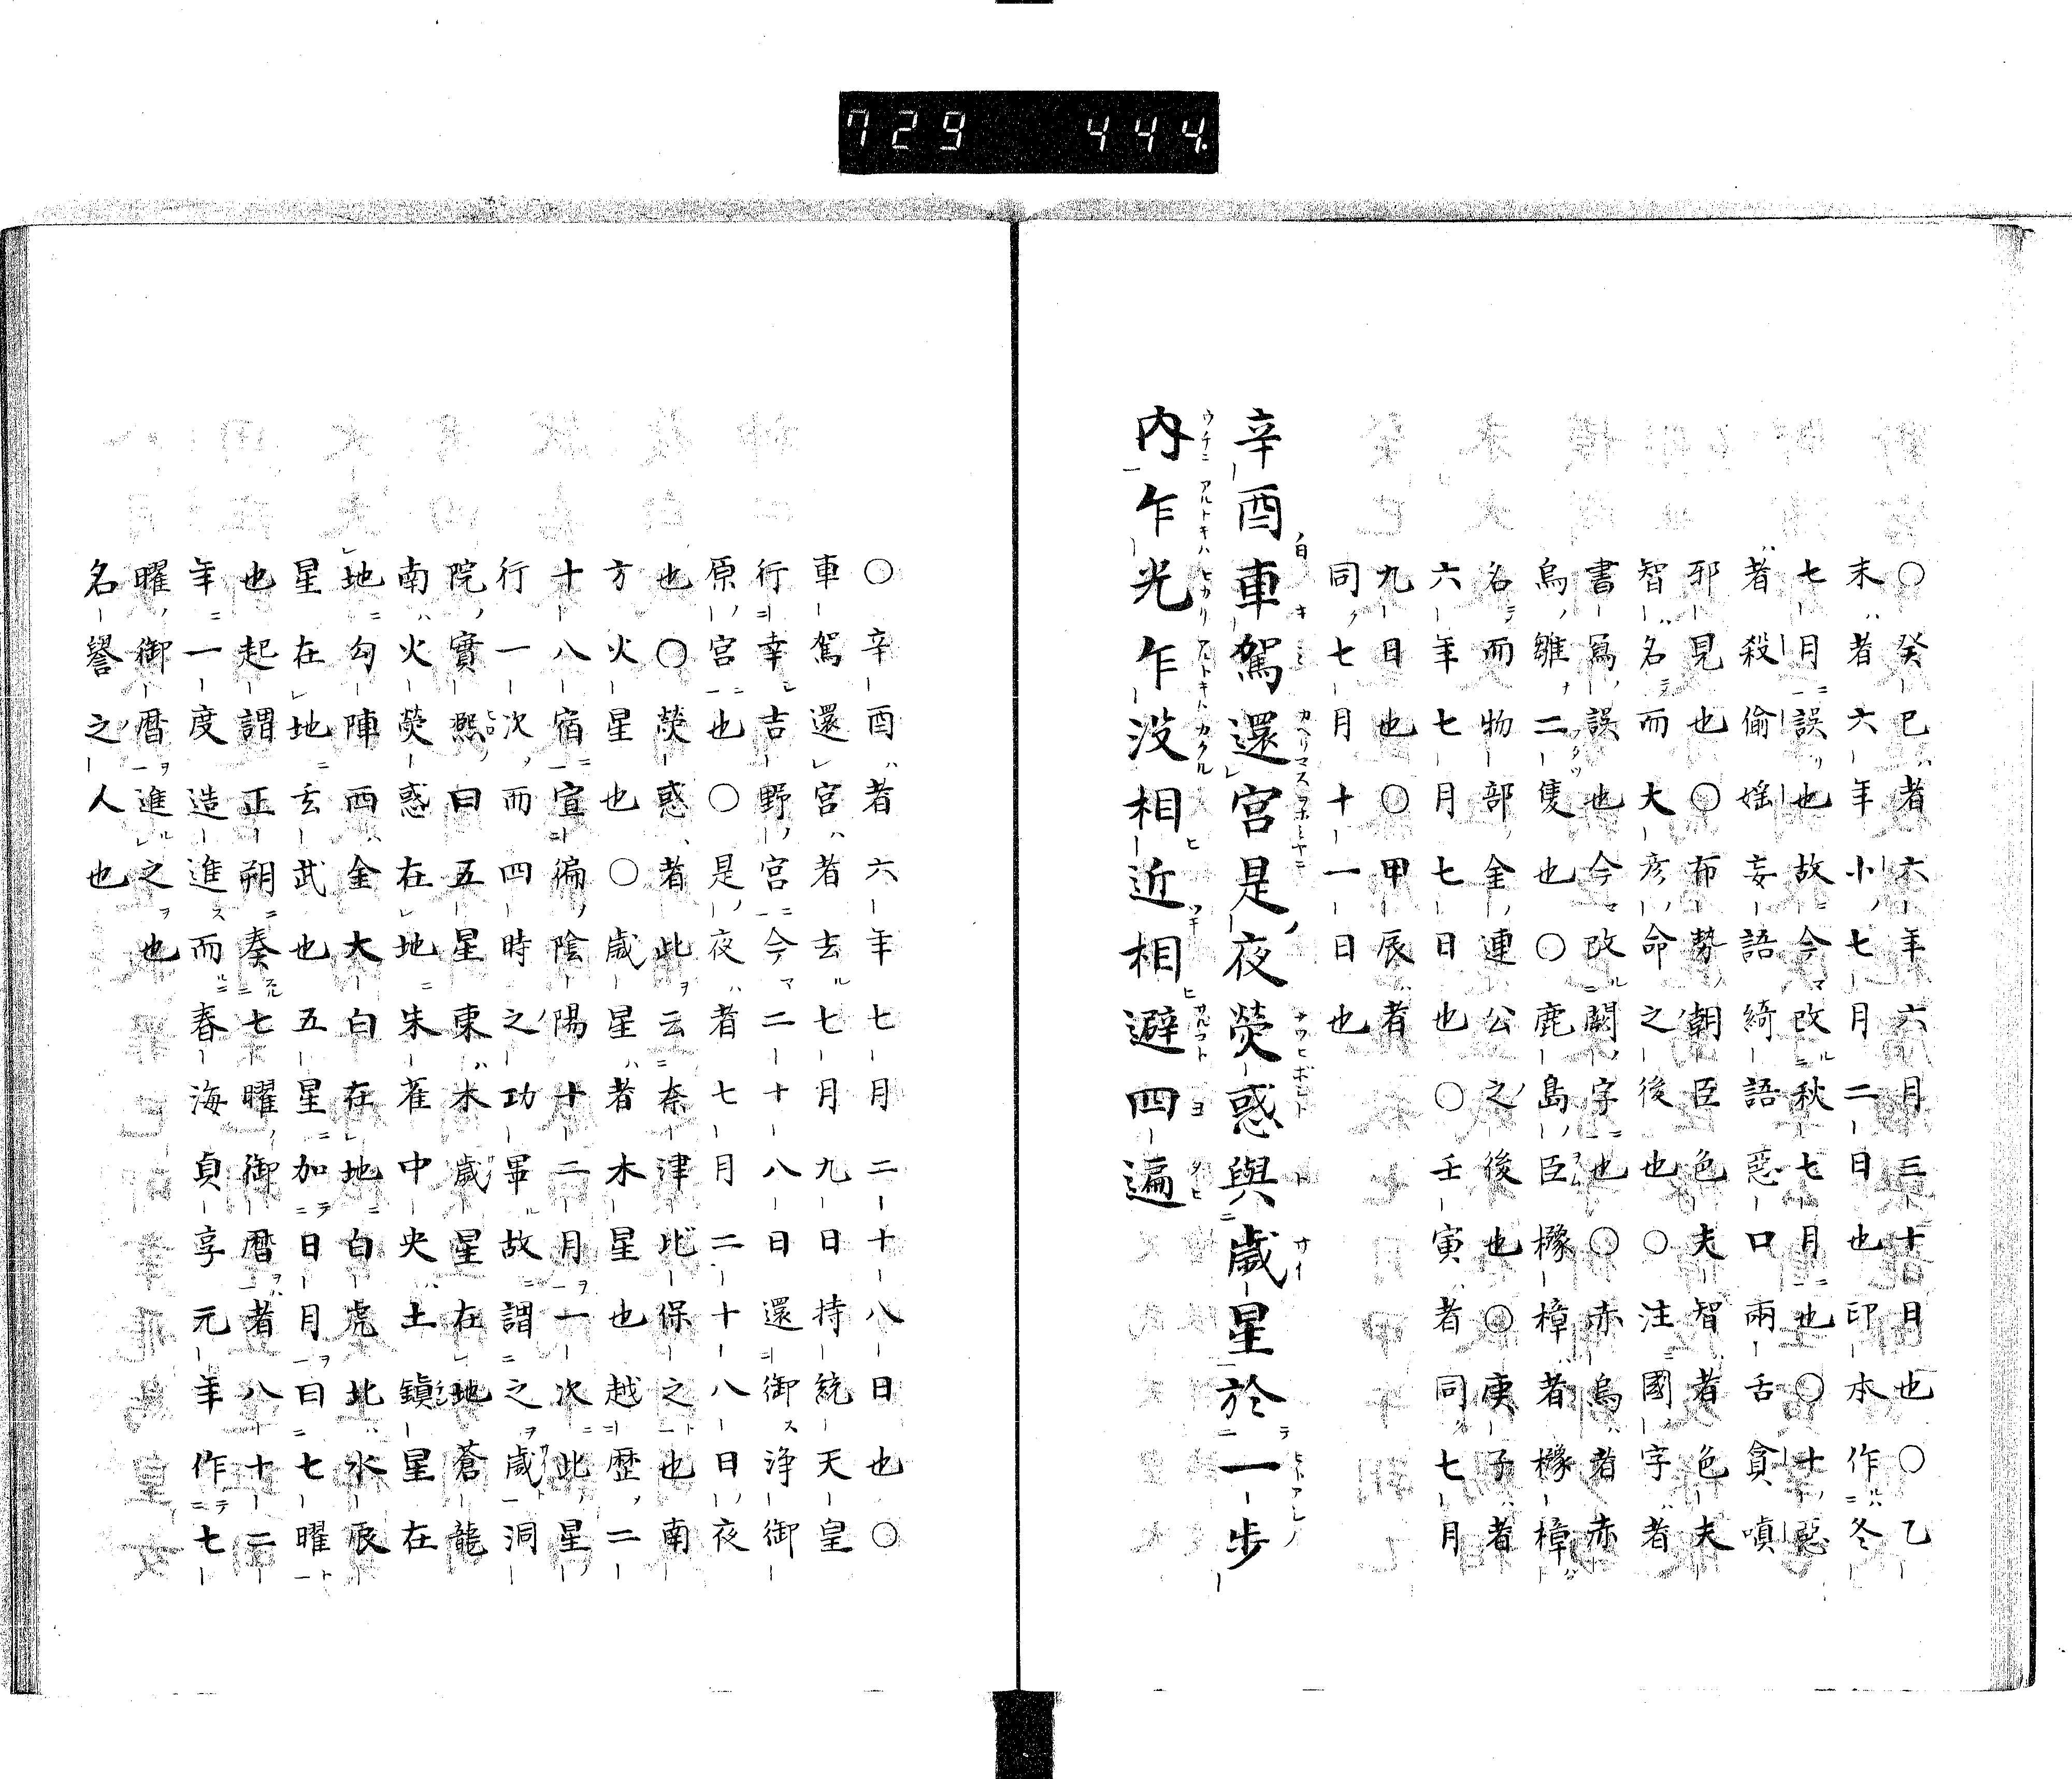 729 444
〇癸巳者六年六月三十日也〇乙
末者六年小七月二日也印本作冬
七月誤也故今改秋七月也〇十惡
者殺偷婬妄語綺語惡口兩舌貪嗔
邪見也〇布勢朝臣色夫智者色夫
智名而大彦命之後也〇注國字者
書寫誤也今改闕字也〇赤烏者赤
烏雛二隻也〇鹿島臣櫲樟者櫲樟
名而物部金連公之後也〇庚子者
六年七月七日也〇壬寅者同七月
九日也〇甲辰者
同七月十一日也
辛酉車駕還宮是夜熒惑與歲星於一步
內乍光乍沒相近相避四遍
〇辛酉者六年七月二十八日也〇
車駕還宮者去七月九日持統天皇
行幸吉野宮今二十八日還御淨御
原宮也〇是夜者七月二十八日夜
也〇熒惑者此云奈津比保之也南
方火星也〇歲星者木星也越歷二
十八宿宣徧陰陽十二月一次此星
行一次而四時之功畢故謂之歲洞
院實熙曰五星東木歲星在地蒼龍
南火熒惑在地朱雀中央土鎮星在
地勾陣西金大白在地白虎北水辰
星在地玄武也五星加日月曰七曜
也起謂正朔奏七曜御曆者八十二
年一度造進而春海貞享元年作七
曜御曆進之也
名譽之人也